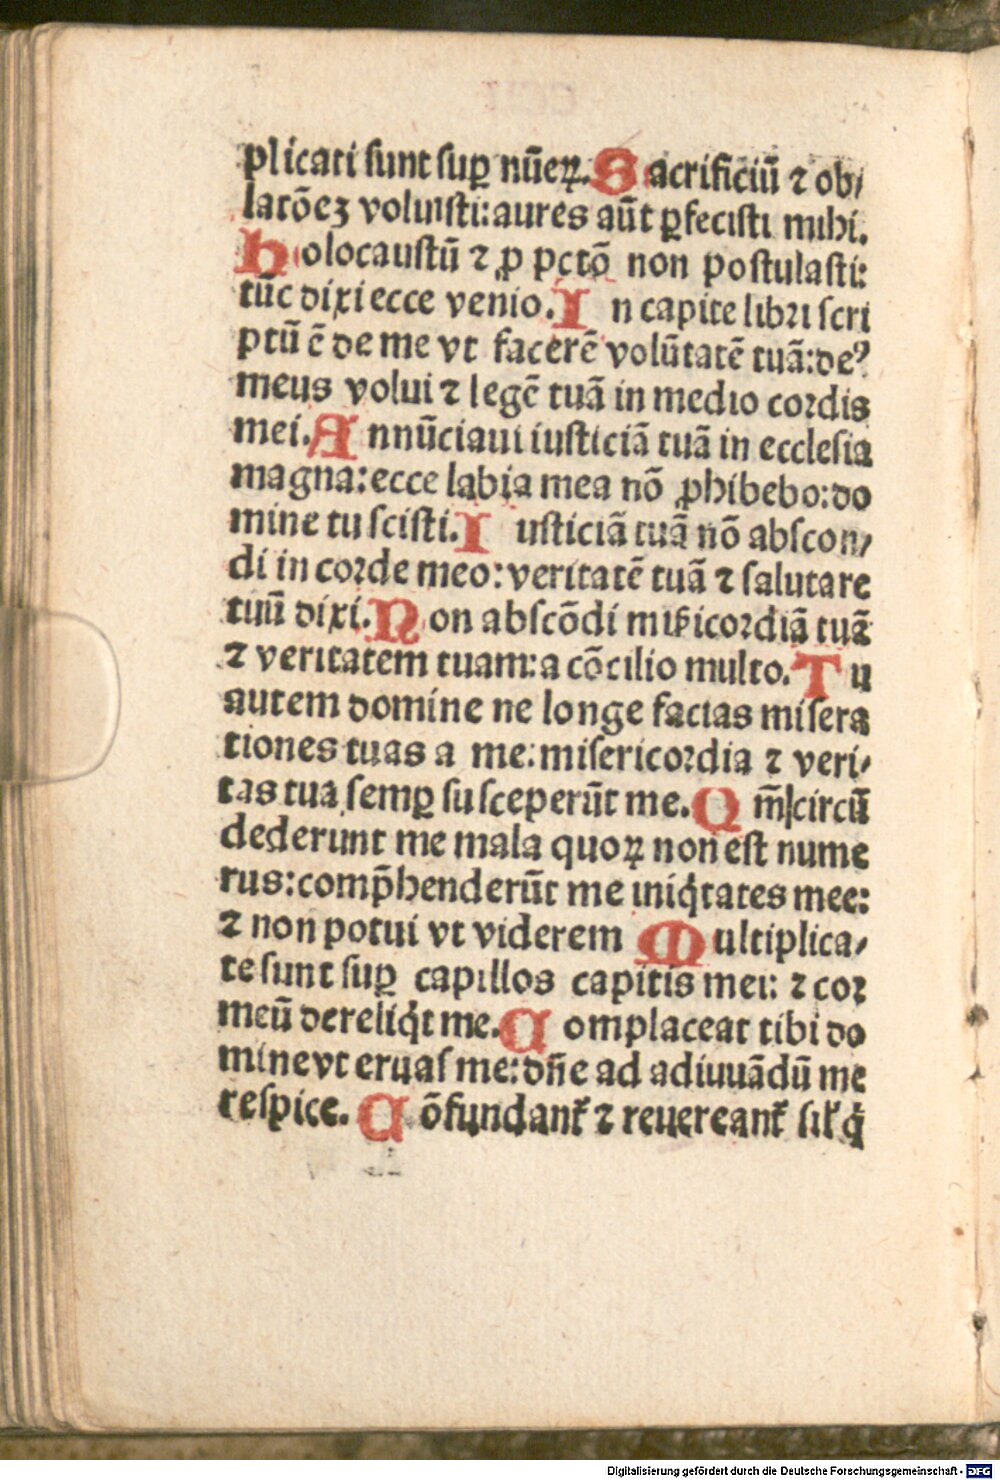 plicati sunt suꝑ nūeꝝ. Sacrificiū ⁊ ob⸗
latōeꝫ voluisti: aures aūt ꝑfecisti mihi.
Holocaustū ⁊ ꝓ pctō non postulasti:
tūc dixi ecce venio. In capite libri scri
ptū ē de me vt facerē volūtatē tuā: de⁹
meus volui ⁊ legē tuā in medio cordis
mei. Annūciaui iusticiā tuā in ecclesia
magna: ecce labia mea nō ꝓhibebo: do
mine tu scisti. Iusticiā tuā nō abscon⸗
di in corde meo: veritatē tuā ⁊ salutare
tuū dixi. Non abscōdi mi&#x17F;̄icordiā tuā
⁊ veritatem tuam: a cōcilio multo. Tu
autem domine ne longe facias misera
tiones tuas a me: misericordia ⁊ veri⸗
tas tua semꝑ susceperūt me. Qm̄ circū
dederunt me mala quoꝝ non est nume
rus: comp̄henderūt me iniq̇tates mee:
⁊ non potui vt viderem Multiplica⸗
te sunt suꝑ capillos capitis mei: ⁊ cor
meū dereliq̇t me. Complaceat tibi do
mine vt eruas me: dn̄e ad adiuuādū me
respice. Cōfundant᷑ ⁊ reuereant᷑ sil᷑ q̇
Digitalisierung gefördert durch die Deutsche Forschungsgemeinschaft - DFG